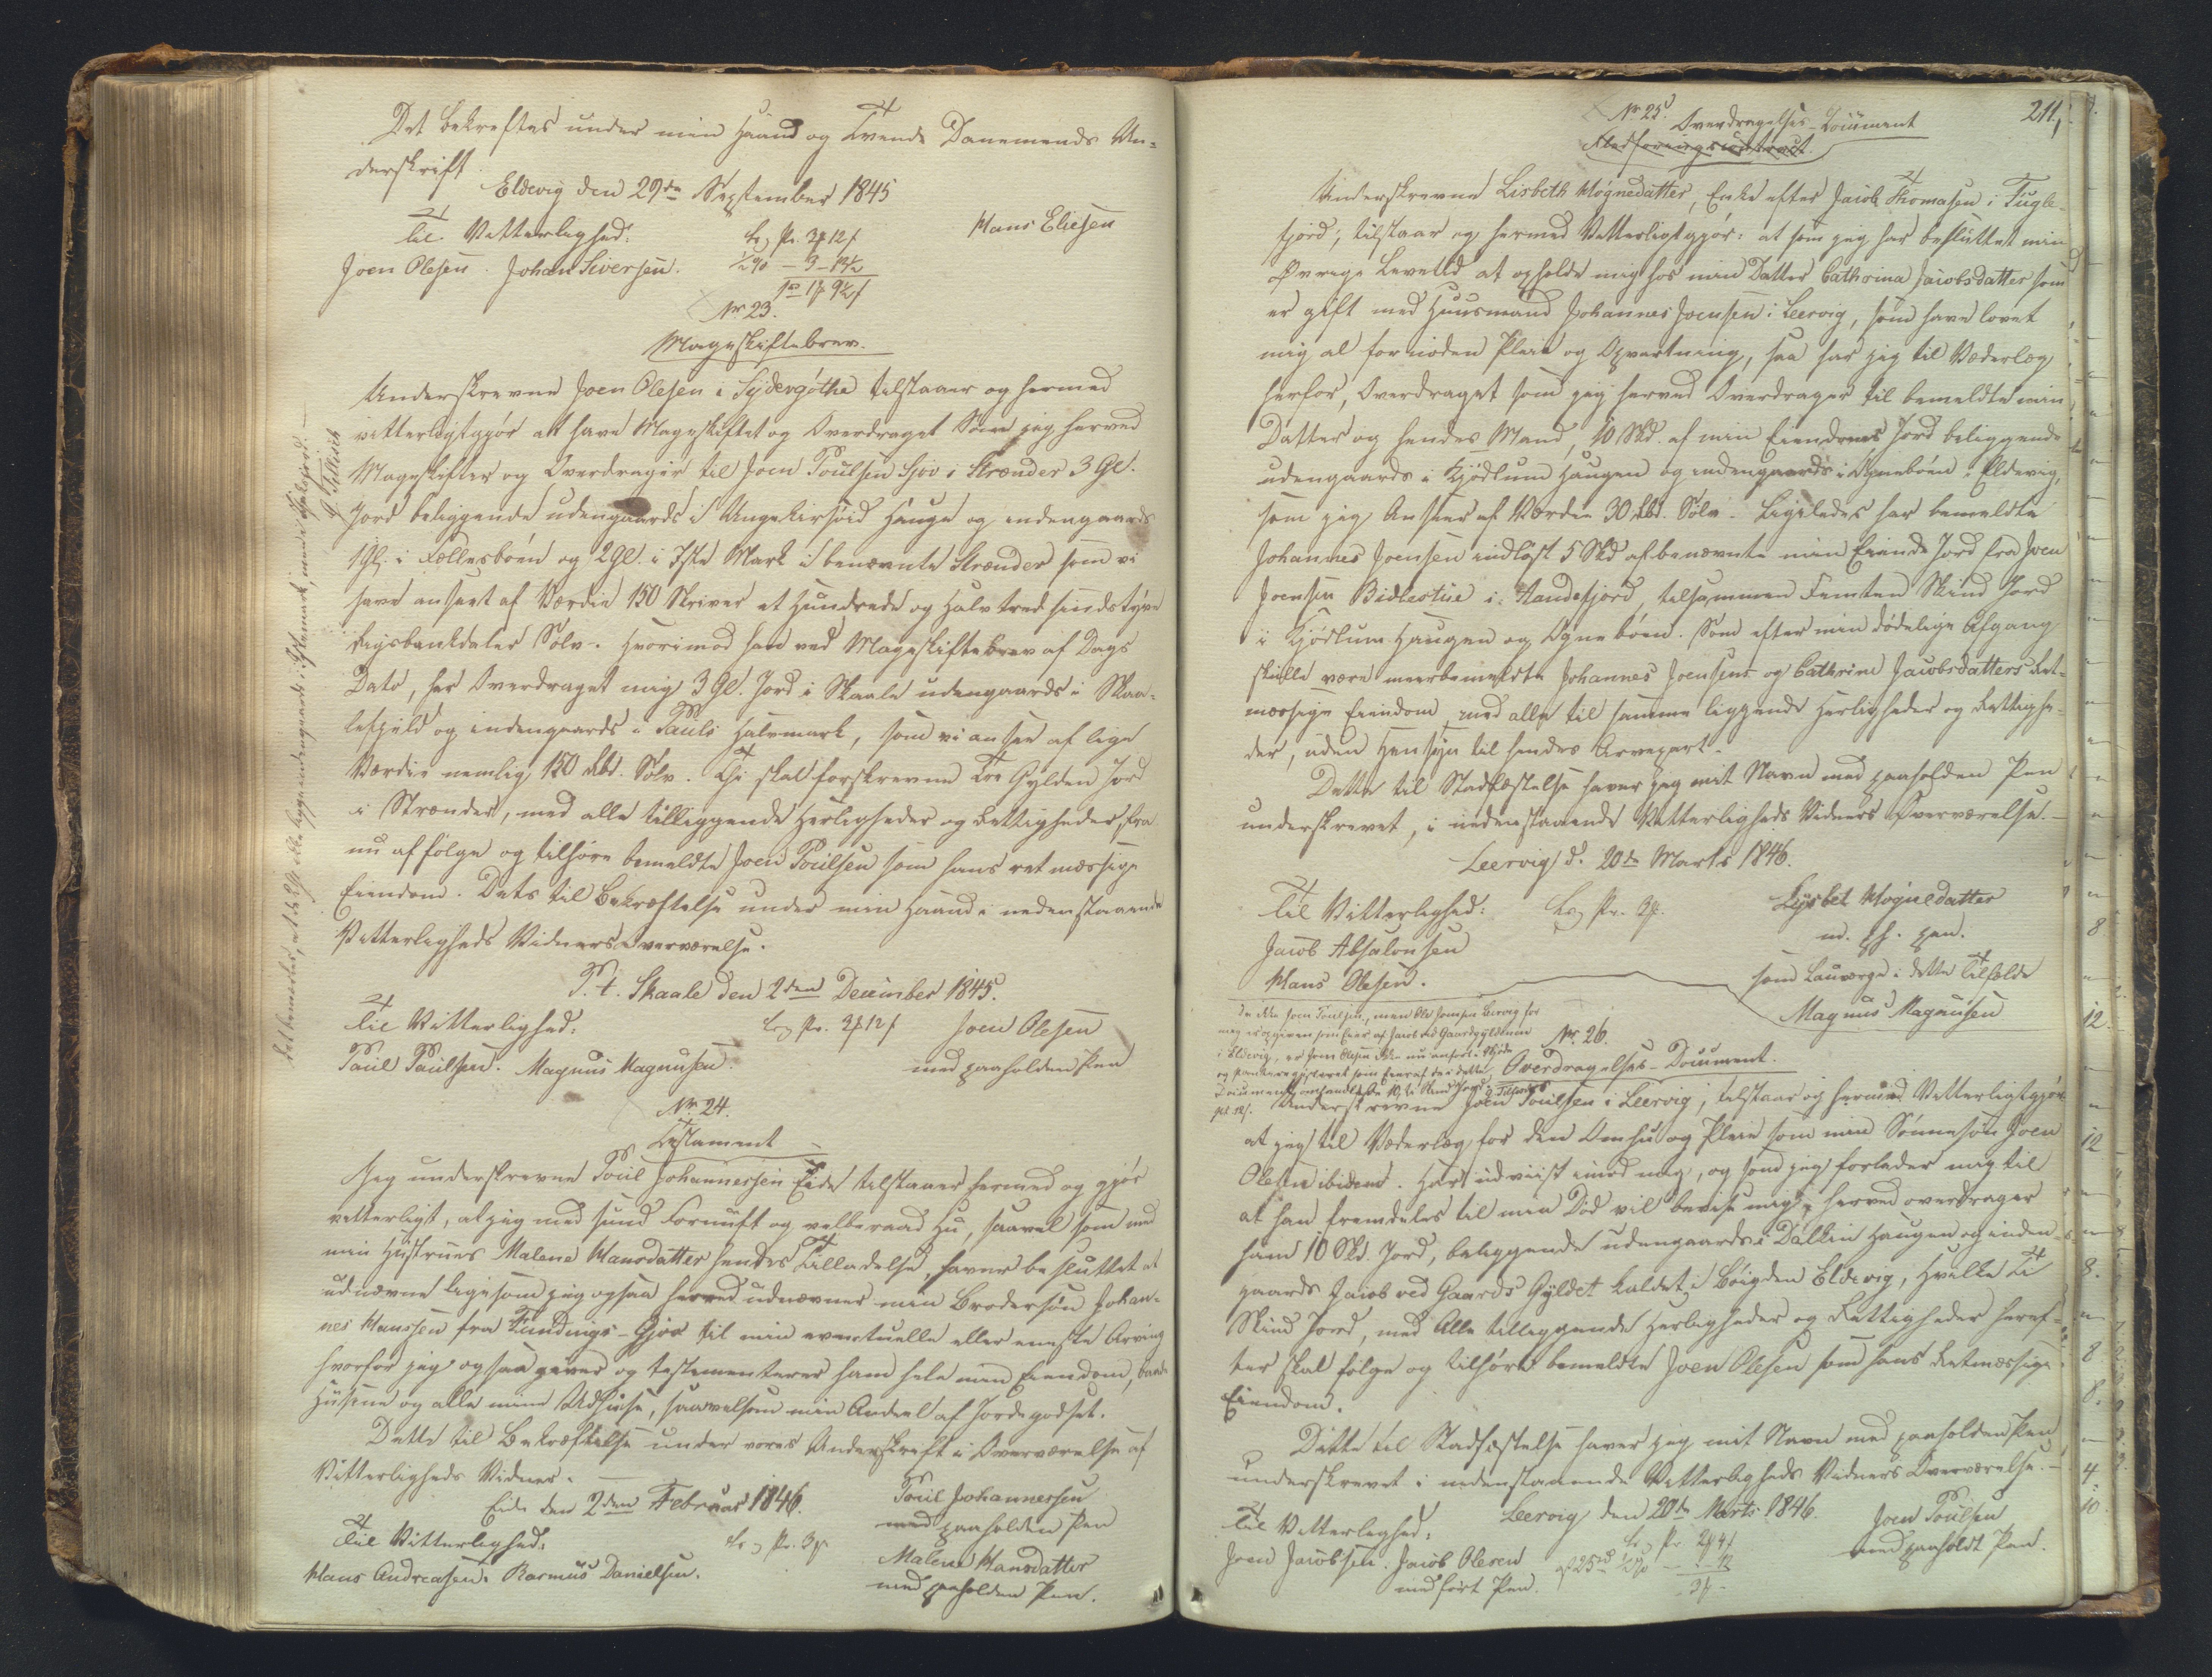 Det bekreftes under min Haand og Tvende Danemends Un-
derskrift.
Eldevig den 29de September 1845
Til Vitterlighed:
Hans Eliesen
Joen Olesen. Johan Siversen.
No 23.
Mageskiftebrev.
Underskrevne Joen Olesen i Sydergøthe tilstaaer og hermed
vitterligtgjør at have Mageskiftet og Overdraget Som jeg herved
Mageskifter og Overdrager til Joen Poulsen Sjov i Strænder 3 Gl.
Jord beliggende udengaards i Hauge og indengaards
1 Gl. i Fællesbøen og 2 Gl. i Iste Mark i benævnte Strænder som vi
have anseet af Værdie 150 Skriver et Hundrede og Halvtredsindstyve
Rigsbankdaler Sølv. Hvorimod han ved Mageskiftebrev af Dags
Dato, har Overdraget mig 3 Gl. Jord i Skaale udengaards i Skaa-
lefjeld og indengaards i Pauls Halvmark, som vi ansee af lige
Værdie nemlig 150 Rbd. Sølv. Thi skal forskrevne Tre Gylden Jord
i Strænder, med alle tilliggende Herligheder og Rettigheder, fra
nu af følge og tilhøre bemeldte Joen Poulsen som hans retmæssige
Eiendom. Dets til Bekræftelse under min Haand i nedenstaaende
Vitterligheds Vidners Overværelse.
P. t. Skaale den 2den December 1845.
Til Vitterlighed:
Joen Olesen
Paul Paulsen. Magnus Magnusen.
med paaholden Pen
No 24.
Testament
Jeg underskrevne Poul Johannessen Eide tilstaaer hermed og gjør
vitterligt, at jeg med sund Fornuft og velberaad Hu, saavel som med
min Hustrues Malene Hansdatter hendes Tilladelse, haver besluttet at
udnævne ligesom jeg ogsaa herved udnævner min Brodersøn Johan-
nes Hanssen fra Fundings-Gjov til min eventuelle eller eneste Arving
hvorfor jeg ogsaa giver og testamenterer ham hele min Eiendom, baade
Husene og alle mine Udhuse, saavelsom min Andeel af Jordegodset.
Dette til Bekræftelse under vores Underskrift i Overværelse af
Vitterligheds Vidner.
Eide den 2den Februar 1846.
Poul Johannessen
Til Vitterlighed:
med paaholden Pen
Malene Hansdatter
Hans Andreasen. Rasmus Danielsen.
med paaholden Pen.
211,
No 25.
Overdragelses-Document
Underskrevne Lisbeth Mognedatter, Enke efter Jacob Thomasen i Fugle-
fjord, tilstaar og hermed Vitterligtgjør: at som jeg har besluttet min
Øvrige Levetid at opholde mig hos min Datter Cathrina Jacobsdatter som
er gift med Huusmand Johannes Joensen i Leervig, som have lovet
mig al fornøden Pleie og Opvartning, saa har jeg til Vederlag
herfor, Overdraget som jeg herved Overdrager til bemeldte min
Datter og hendes Mand, 10 Skd. af min Eiendoms Jord beliggende
udengaards i Kjødlum Haugen og indengaards i Ognebøen i Eldevig,
som jeg Ansser af Værdie 30 Rbd. Sølv. Ligeledes har bemeldte
Johannes Joensen indløst 5 Skd af benævnte min Eiende Jord fra Joen
Joensen Bidlestue i Andefjord, tilsammen Femten Skind Jord
i Kjødlum Haugen og Ognebøen. Som efter min dødelige Afgang
skulle være meerbemeldte Johannes Joensens og Cathrine Jacobsdatters Ret-
mæssige Eiendom, med alle til samme liggende Herligheder og Rettighe-
der, uden Hensyn til hendes Arvepart.
Dette til Stadfæstelse haver jeg mit Navn med paaholden Pen
underskrevet, i nedenstaaende Vitterligheds Vidners Overværelse.
Leervig d. 20de Marts 1846.
Til Vitterlighed:
Lysbet Mognedatter
m. ph. pen.
Jacob Absalonsen
Hans Olesen.
som Lauværge i dette Tilfælde
Magnus Magnusen
No. 26.
Overdragelses-Document.
Underskrevne Joen Poulsen i Leervig, tilstaar og hermed Vitterligtgjør
at jeg til Vederlag for den Omhu og Pleie som min Sønnesøn Joen
Olesen ibidem. Har udviist imod mig, og som jeg forlader mig til
at han fremdeles til min Død vil bevise mig, herved overdrager
ham 10 Skd. Jord, beliggende udengaards i Dalkin Haugen og inden-
gaards Jacob ved Gaards Gyldet kaldet i Bøigden Eldevig, Hvilke Ti
Skind Jord, med Alle tilliggende Herligheder og Rettigheder heref-
ter skal følge og tilhøre bemeldte Joen Olesen som hans Retmæssige
Eiendom.
Dette til Stadfæstelse haver jeg mit Navn med paaholden Pen
underskrevet i nedenstaaende Vitterligheds Vidners Overværelse.
Leervig den 20de Marts 1846.
Til Vitterlighed:
Joen Poulsen
Joen Jacobsen. Jacob Olesen
med paaholdt Pen.
med ført Pen.